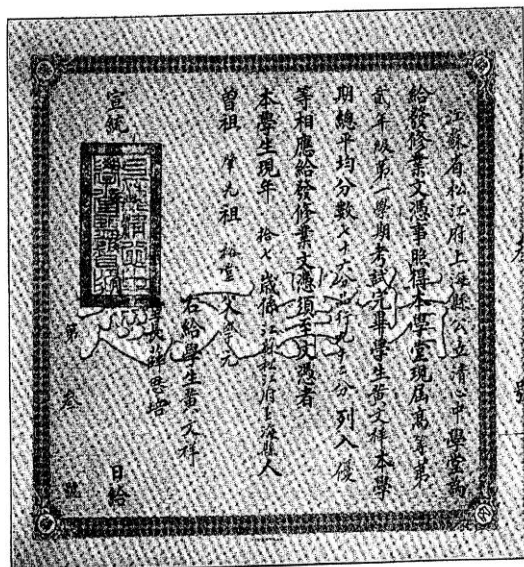 江蘇省松江府上海縣公立清心中學堂為
給發修業文憑事照得本學堂現屆高等第
貳年級第一學期考試完畢學生黃文祥本學
期總平均分數七十 分品行九十二分列入優
等相應給發修業文憑須至文憑者
本學生現年拾七歲係江蘇松江府上海縣人
曾祖 肇元 祖 裕堂 父
右給學生黃文祥
長薛思培
宣統 日給
第 叁 號
修業文憑